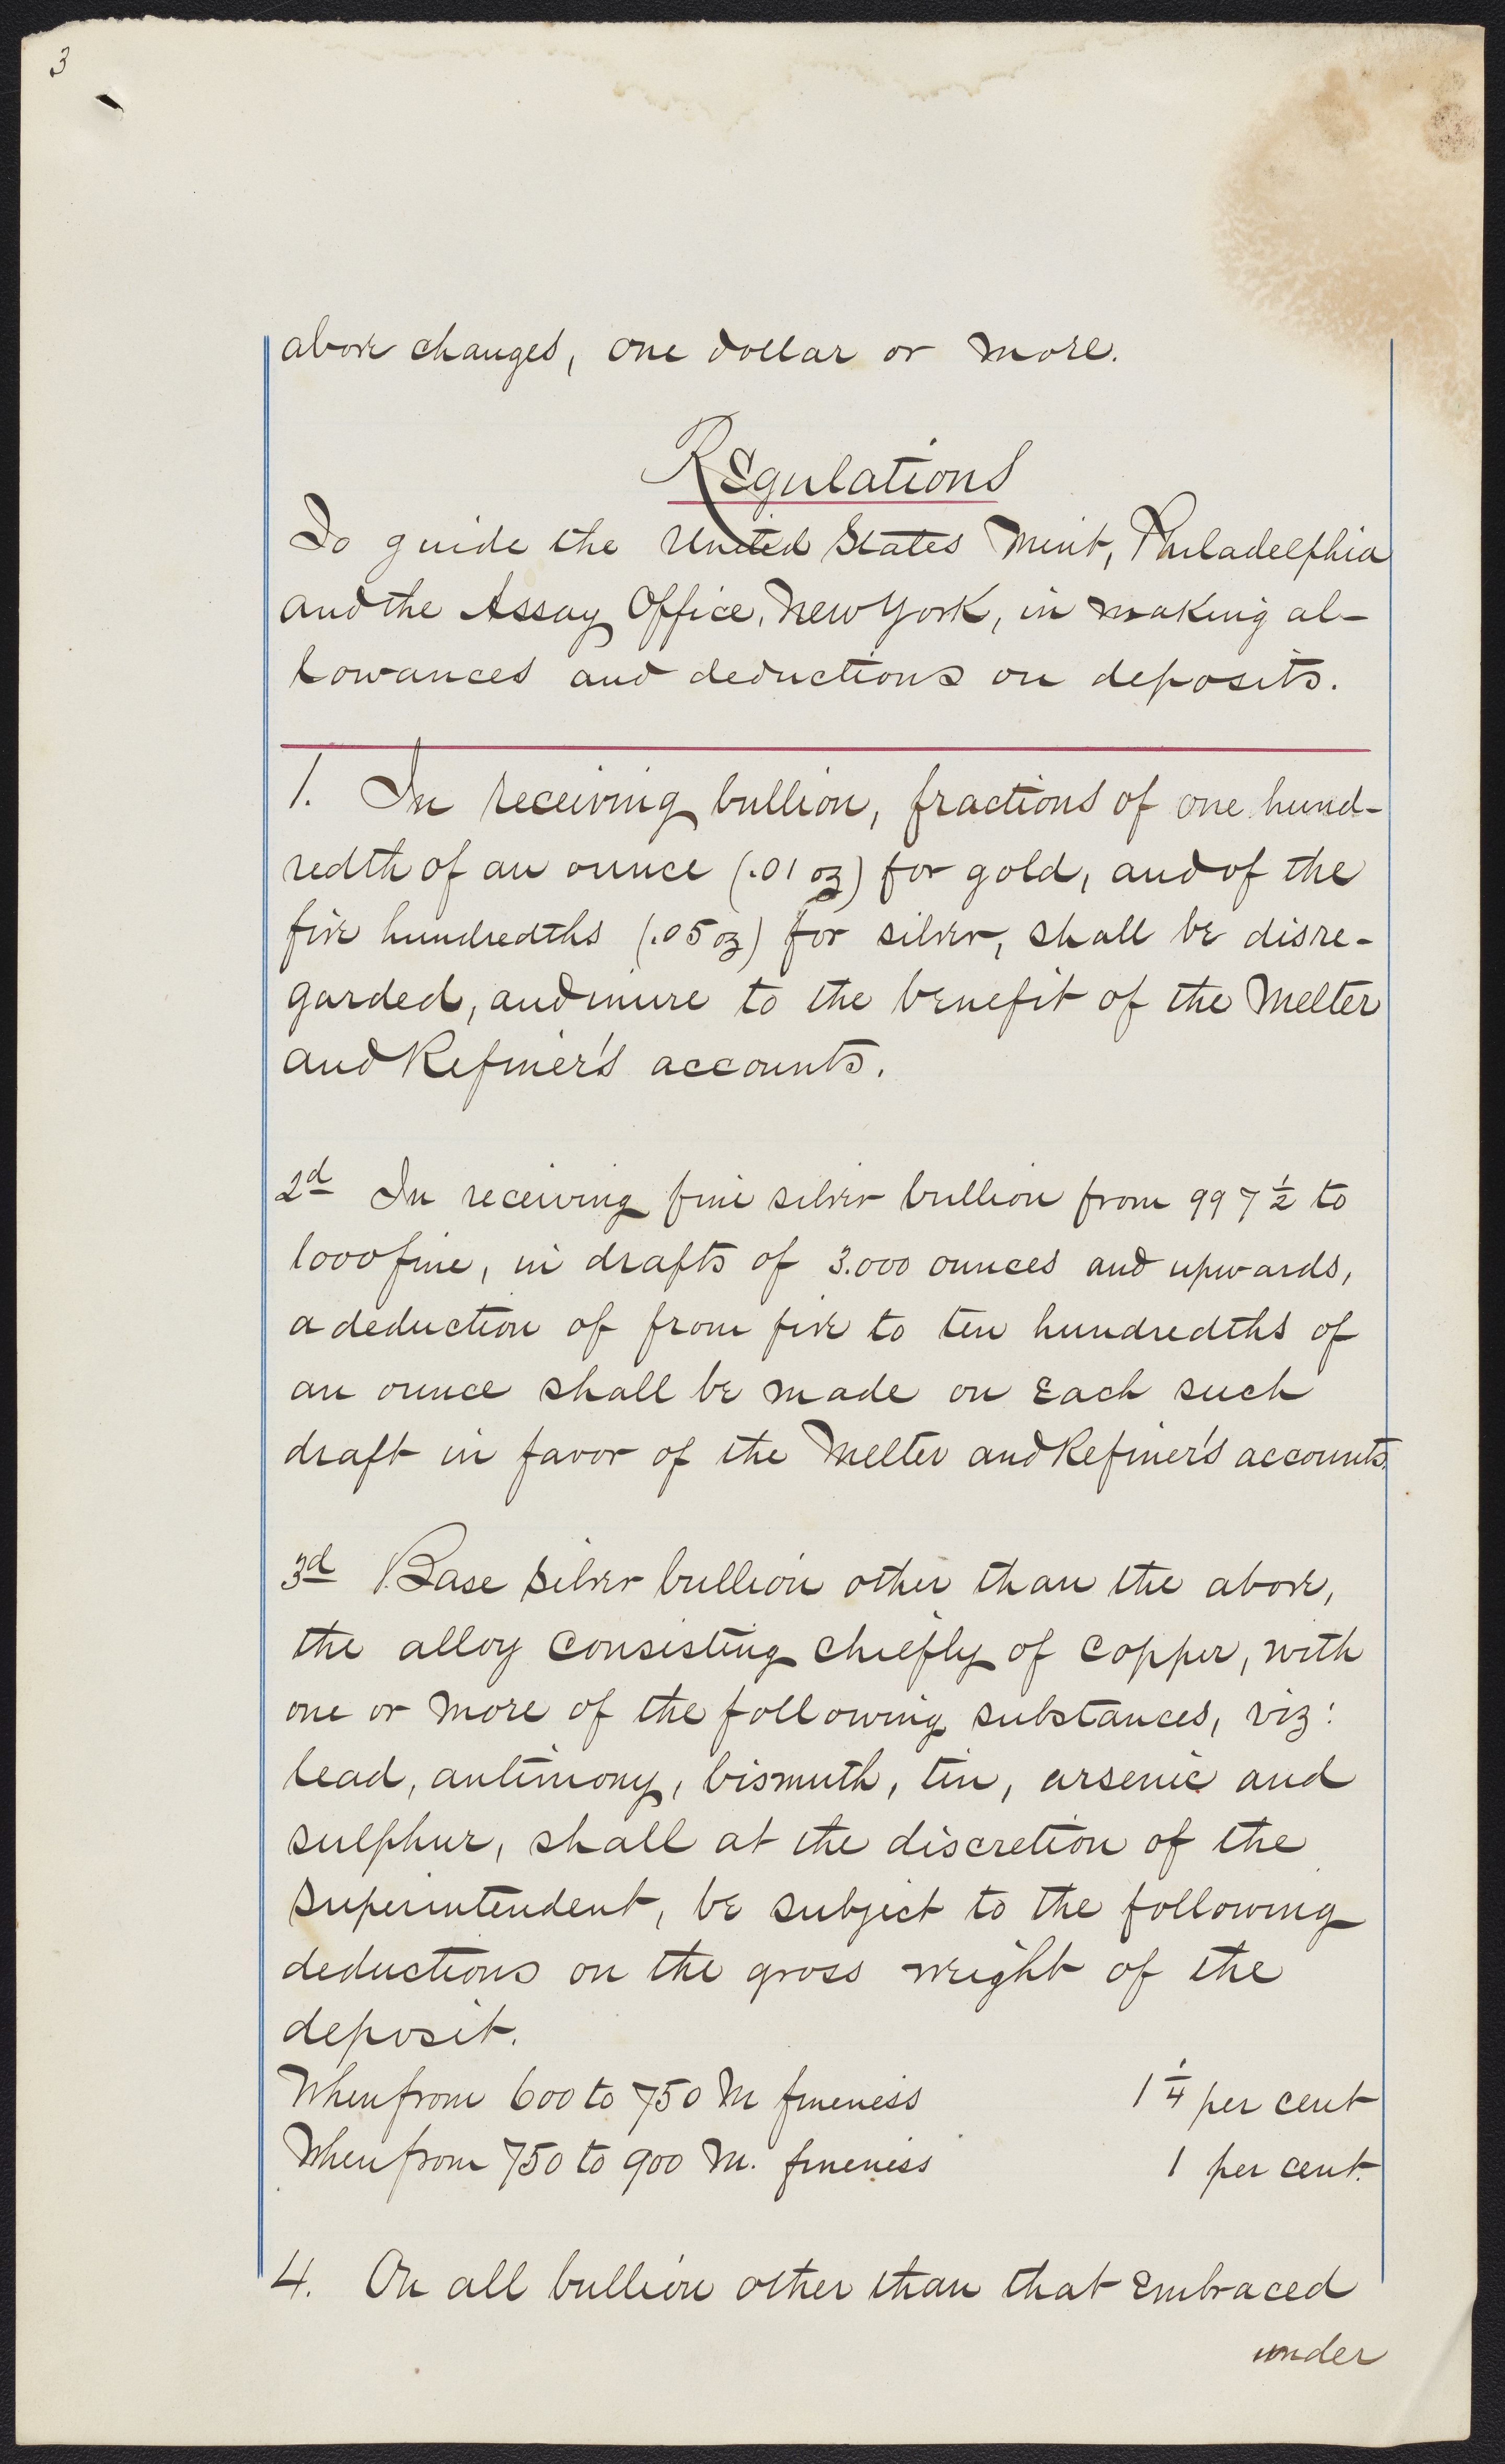 3
above changes, one dollar or more.
Regulations
To guide the United States Mint, Philadelphia
and the Assay Office, New York, in making al-
lowances and deductions on deposits.
1. In receiving bullion, fractions of one hund-
redth of an ounce (.01 oz) for gold, and of the
five hundredths (.05 oz) for silver, shall be disre-
garded, and inure to the benefit of the Melter
and Refiner's accounts.
2d In receiving fine silver bullion from 997 ½ to
1000 fine, in drafts of 3.000 ounces and upwards,
a deduction of from five to ten hundredths of
an ounce shall be made on each such
draft in favor of the Melter and Refiner's accounts.
3d Base silver bullion other than the above,
the alloy consisting chiefly of copper, with
one or more of the following substances, viz:
lead, antimony, bismuth, tin, arsenic and
sulphur, shall at the discretion of the
Superintendent, be subject to the following
deductions on the gross weight of the
deposit.
When from 600 to 750 M fineness 1 ¼ per cent
When from 750 to 900 M. fineness 1 per cent.
4. On all bullion other than that embraced
under